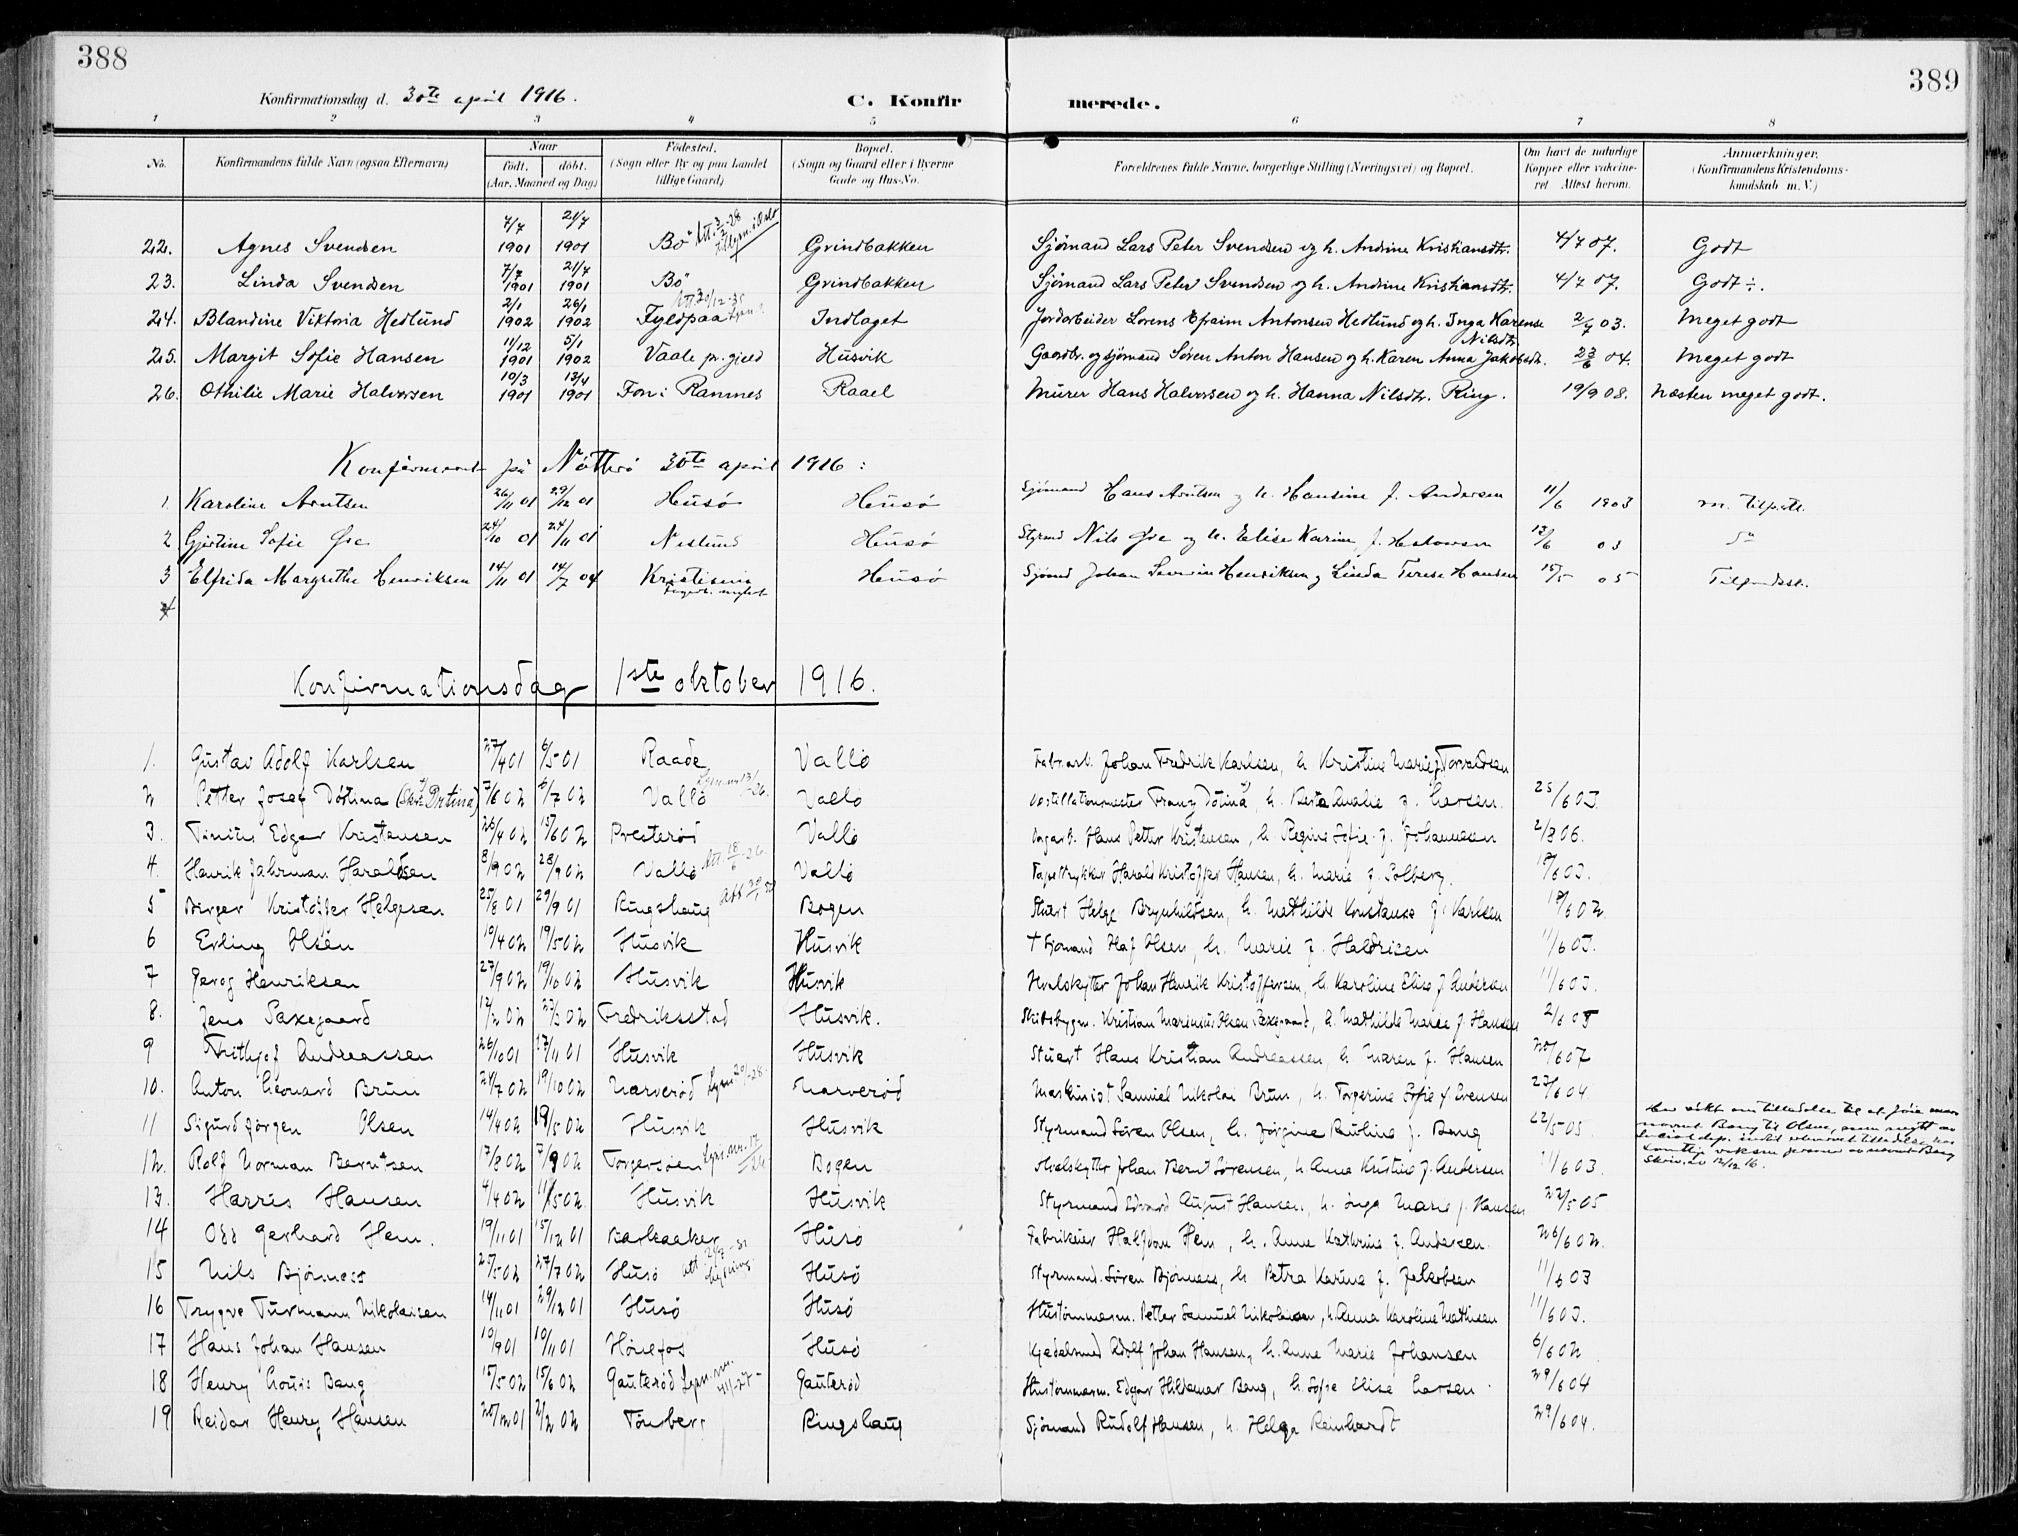 388
389
Konfirmationsdag d. 30te april 1916.
C. Konfirmerede.
1 2 3 4 5 6 7 8
No. Konfirmandens fulde Navn (ogsaa Efternavn) Naar født. døbt. (Aar, Maaned og Dag) Fødested. (Sogn eller By og paa Landet tillige Gaard) Bopæl. (Sogn og Gaard eller i Byerne Gade og Hus-No. Forældrenes fulde Navne, borgerlige Stilling (Næringsvei) og Bopæl. Om havt de naturlige Kopper eller vakcineret. Attest herom. Anmærkninger. (Konfirmandens Kristendomskundskab m. V.)
22. Agnes Svendsen 7/7 1901 21/7 1901 Bö Grindbakken Sjømand Lars Peter Svendsen og h. Andrine Kristiansdtr. 4/7 07. Godt
23. Linda Svendsen 7/7 1901 21/7 1901 Bö Grindbakken Sjømand Lars Peter Svendsen og h. Andrine Kristiansdtr. 4/7 07. Godt ÷.
24. Blandine Viktoria Hedlund 2/1 1902 26/1 1902 Fyldpaa Indlaget Jordarbeider Lorens Efraim Antonsen Hedlund og h. Inga Karense Nilsdtr. 2/7 03. Meget godt
25. Margit Sofie Hansen 11/12 1901 5/1 1902 Vaale pr.gjeld Husvik Gaardbr. og sjømand Søren Anton Hansen og h. Karen Anna Jakobsdtr. 23/6 04. Meget godt
26. Othilie Marie Halvorsen 10/3 1901 13/4 1901 Fon i Ramnes Raael Murer Hans Halvorsen og h. Hanna Nilsdtr. Ring. 19/9 08. Næsten meget godt.
Konfirmeret på Nötterö 30te april 1916:
1. Karoline Arntsen 26/11 01 29/12 01 Husö Husö Sjømand Hans Arntsen og h. Hansine f. Andersen 11/6 1903 m. tilfreds.
2 Gjertine Sofie Øre 24/10 01 24/11 01 Husö Styrmd Nils Øre og h. Elise Karine f. 13/6 03 do
3 Elfrida Margrethe Henriksen 14/11 01 14/7 04 Kristiania Husö Sjømd Johan Severin Henriksen og Linda Terese Hansen 15/5 05 Tilfredsst.
Konfirmationsdag 1ste oktober 1916.
1. Gustav Adolf Karlsen 27/4 01 6/5 01 Raade Vallö Fabrarb. Johan Fredrik Karlsen, h. Kristine Marie f. Torvaldsen
2 Petter Josef Dótina 7/6 02 6/7 02 Vallö Vallö Destillationsmester Franz Dótina, h. Berta Amalie f. Larsen. 25/6 03.
3. Tinius Edgar Kristensen 26/4 02 15/6 02 Presterød Vallö Hans Petter Kristensen, h. Regine Sofie f. Johannesen 2/8 06.
4. Henrik Jahrman Haraldsen 8/9 02 28/9 02 Vallö Att. 18/6-26. Vallö Tapettrykker Harald Kristoffer Hansen, h. Marie f. Solberg. 19/6 03.
5 Birger Kristoffer Helgesen 25/8 01 29/9 01 Ringshaug Bogen Stuert Helge Brynhildsen, h. Mathilde Konstanse f. Karlsen 19/6 02.
6 Erling Olsen 19/4 02 19/5 02 Husvik Husvik † Sjømand Olaf Olsen, h. Marie f. Haldrisen 11/6 03.
7 Georg Henriksen 27/9 02 19/10 02 Husvik Husvik Hvalskytter Johan Henrik Kristoffersen, h. Karoline Elise f. Andersen 11/6 03.
8. Jens Saxegaard 12/2 02 23/3 02 Fredriksstad Husvik. Skibsbygm. Kristian Marinius Olsen Saxegaard, h. Mathilde Marie f. Hansen 2/6 05
9 Frithjof Andreassen 26/10 01 17/11 01 Husvik Husvik Stuert Hans Kristian Andreassen, h. Maren f. Hansen 20/6 07
10. Anton Leonard Brun 24/7 02 19/10 02 Narverød Narverød Maskinist Samuel Nikolai Brun, h. Torgerine Sofie f. Evensen 27/6 04
11 Sigurd Jörgen Olsen 14/4 02 19/5 02 Husvik Husvik Styrmand Søren Olsen, h. Jörgine Pauline f. Bang 22/5 05.
Har søkt om tilladelse til at føie navn
12. Rolf Norman Berntsen 17/8 02 7/9 02 Torgersøen Bogen Hvalskytter Johan Bernt Sørensen, h. Anna Kristine f. Andersen 11/6 03.
13. Harris Hansen 4/4 02 11/5 02. Husvik Husvik Styrmand Edvard August Hansen, h. Inga Marie f. Hansen 22/5 05
14 Odd Gerhard Hem. 19/11 01 15/12 01 Barkaaker Husö Fabrikeier Halfdan Hem, h. Anne Kathrine f. Andersen. 26/6 02.
15 Nils Bjørness 25/5 02 27/7 02 Husö Husö Styrmand. Søren Bjørness, h. Petra Karine f. Jakobsen 11/6 03
16 Trygve Turmann Nikolaisen 14/11 01 29/12 01 Husö Husö Hustømmerm. Petter Samuel Nikolaisen, h. Anna Karoline Mathisen 11/6 03.
17 Hans Johan Hansen 10/9 01 10/11 01 Hönefos Husö Kjedelsmed Adolf Johan Hansen, h. Anne Marie Johansen 6/6 02
18 Henry Louis Bang 15/5 02 15/6 02 Gauterød Gauterød Hustømmerm. Edgar Hildemar Bang, h. Sofie Elise Larsen. 29/6 04
19 Reidar Henry Hansen 25/12 01 2/2 02 Tönsberg Ringshaug Sjømand Rudolf Hansen, h. Helga Reinhardt 29/6 04.